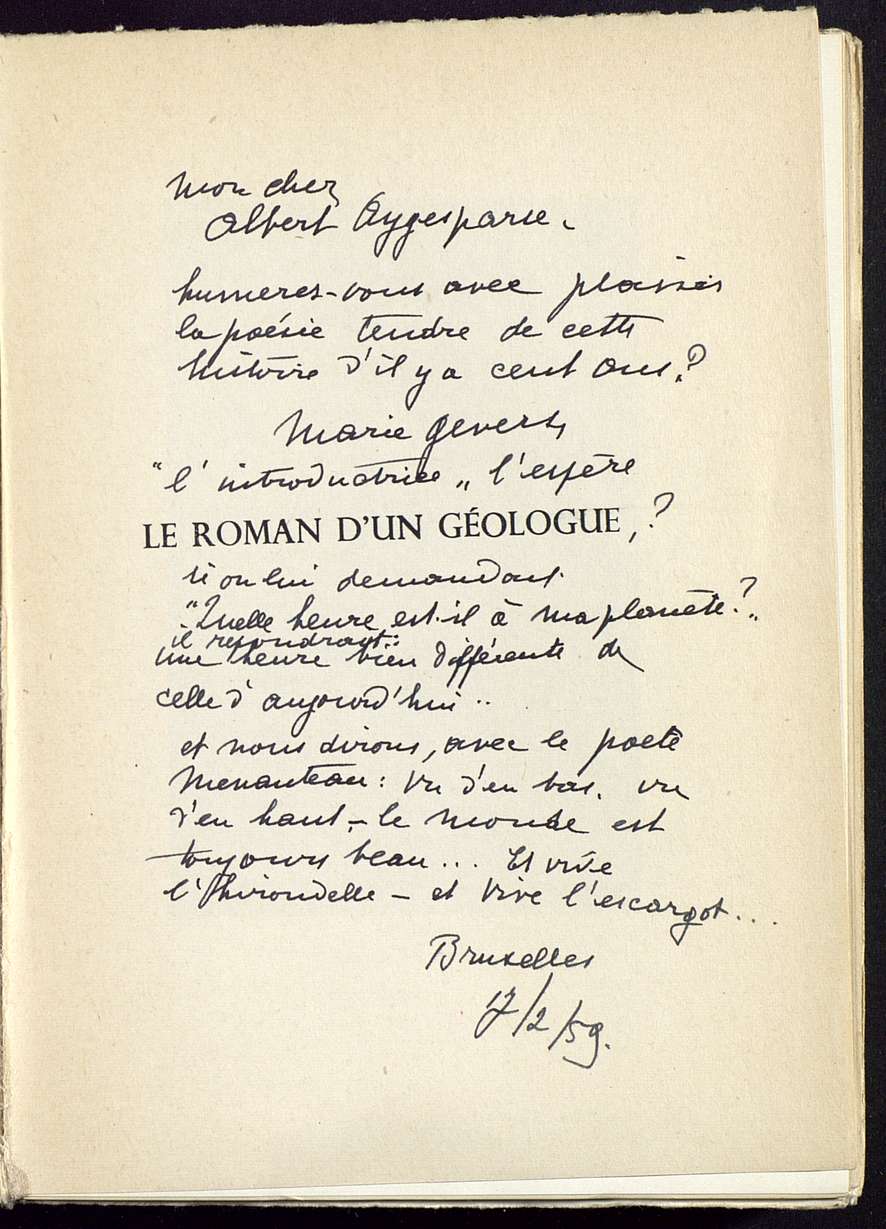 Mon cher
Albert Aygesparse.
humerez-vous avec plaisir
la poésie tendre de cette
histoire d'il y a cent ans ?
Marie Gevers,
"l'introductrice„ l'espère
LE ROMAN D'UN GÉOLOGUE, ?
si on lui demandait
"Quelle heure est-il à ma planète ?„
il repondrait :
une heure bien différente de
celle d'aujourd'hui..
et nous dirons, avec le poete
Menanteau : Vu d'en bas, vu
d'en haut, – le monde est
toujours beau... Et vive
l'hirondelle – et vive l'escargot...
Bruxelles
17/2/59.